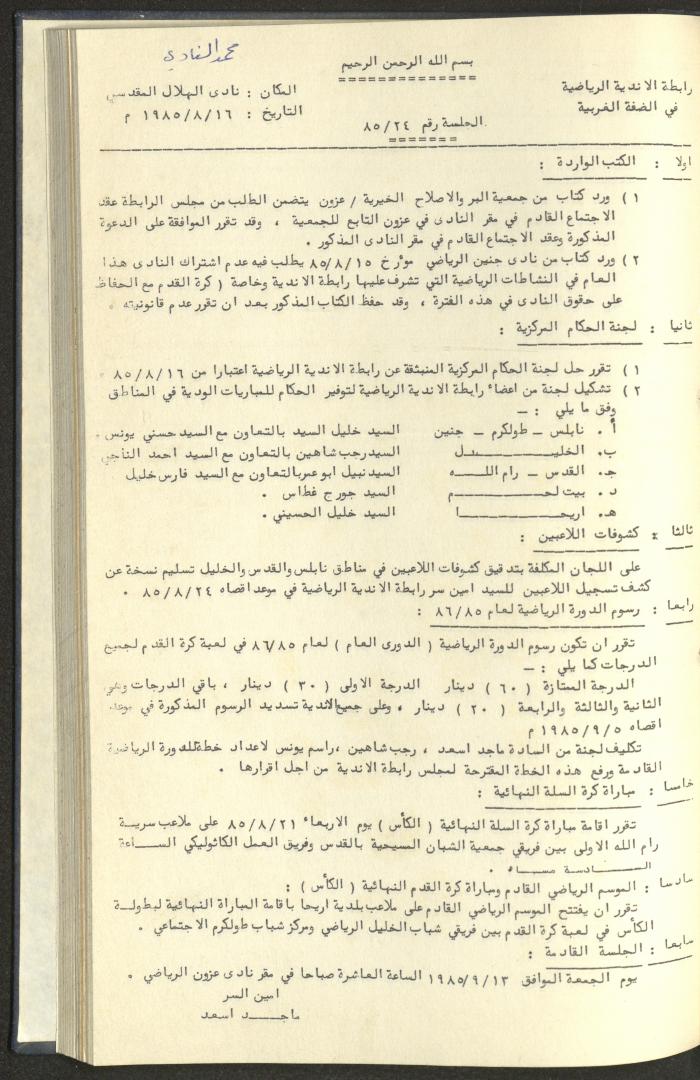 محمد الفادي
بسم الله الرحمن الرحيم
رابطة الاندية الرياضية
في الضفة الغربية
المكان : نادى الهلال المقدسي
التاريخ : ١٩٨٥/٨/١٦ م
الجلسة رقم ٨٥/٢٤
اولا : الكتب الواردة :
١ ) ورد كتاب من جمعية البر والاصلاح الخيرية / عزون يتضمن الطلب من مجلس الرابطة عقد
الاجتماع القادم في مقر النادى في عزون التابع للجمعية ، وقد تقرر الموافقة على الدعوة
المذكورة وعقد الاجتماع القادم في مقر النادى المذكور .
٢ ) ورد كتاب من نادى جنين الرياضي مؤرخ ٨٥/٨/١٥ يطلب فيه عدم اشتراك النادى هذا
العام في النشاطات الرياضية التي تشرف عليها رابطة الاندية وخاصة ( كرة القدم مع الحفاظ
على حقوق النادى في هذه الفترة ، وقد حفظ الكتاب المذكور بعد ان تقرر عدم قانونيته .
ثانيا : لجنة الحكام المركزية :
١ ) تقرر حل لجنة الحكام المركزية المنبثقة عن رابطة الاندية الرياضية اعتبارا من ٨٥/٨/١٦ .
٢ ) تشكيل لجنة من اعضاء رابطة الاندية الرياضية لتوفير الحكام للمباريات الودية في المناطق
وفق ما يلي : ـ
أ . نابلس ـ طولكرم ـ جنين السيد خليل السيد بالتعاون مع السيد حسني يونس .
ب. الخليــــل السيد رجب شاهين بالتعاون مع السيد احمد الناجي
جـ. القدس ـ رام اللـــه السيد نبيل ابو عمر بالتعاون مع السيد فارس خليل
د . بيت لحــــم السيد جورج غطاس .
هـ. اريحـــا السيد خليل الحسيني .
ثالثا : كشوفات اللاعبين :
على اللجان المكلفة بتدقيق كشوفات اللاعبين في مناطق نابلس والقدس والخليل تسليم نسخة عن
كشف تسجيل اللاعبين للسيد امين سر رابطة الاندية الرياضية في موعد اقصاه ٨٥/٨/٢٤ .
رابعا : رسوم الدورة الرياضية لعام ٨٦/٨٥ :
تقرر ان تكون رسوم الدورة الرياضية ( الدورى العام ) لعام ٨٦/٨٥ في لعبة كرة القدم لجميع
الدرجات كما يلي : ـ
الدرجة الممتازة ( ٦٠ ) دينار الدرجة الاولى ( ٣٠ ) دينار ، باقي الدرجات وهي
الثانية والثالثة والرابعة ( ٢٠ ) دينار . وعلى جميع الاندية تسديد الرسوم المذكورة في موعد
اقصاه ١٩٨٥/٩/٥ م
تكليف لجنة من السادة ماجد اسعد ، رجب شاهين ،راسم يونس لاعداد خطة للدورة الرياضية
القادمة ورفع هذه الخطة المقترحة لمجلس رابطة الاندية من اجل اقرارها .
خامسا : مباراة كرة السلة النهائية :
تقرر اقامة مباراة كرة السلة النهائية ( الكأس ) يوم الاربعاء ٨٥/٨/٢١ على ملاعب سريـة
رام الله الاولى بين فريقي جمعية الشبان المسيحية بالقدس وفريق العمل الكاثوليكي الســاعة
الســـادسة مســـاء .
سادسا : الموسم الرياضي القادم ومباراة كرة القدم النهائية ( الكأس ) :
تقرر ان يفتتح الموسم الرياضي القادم على ملاعب بلدية اريحا باقامة المباراة النهائية لبطولـة
الكأس في لعبة كرة القدم بين فريقي شباب الخليل الرياضي ومركز شباب طولكرم الاجتماعي .
سابعا : الجلسة القادمة :
يوم الجمعة الموافق ١٩٨٥/٩/١٣ الساعة العاشرة صباحا في مقر نادى عزون الرياضي .
امين السر
ماجـــد اسعد